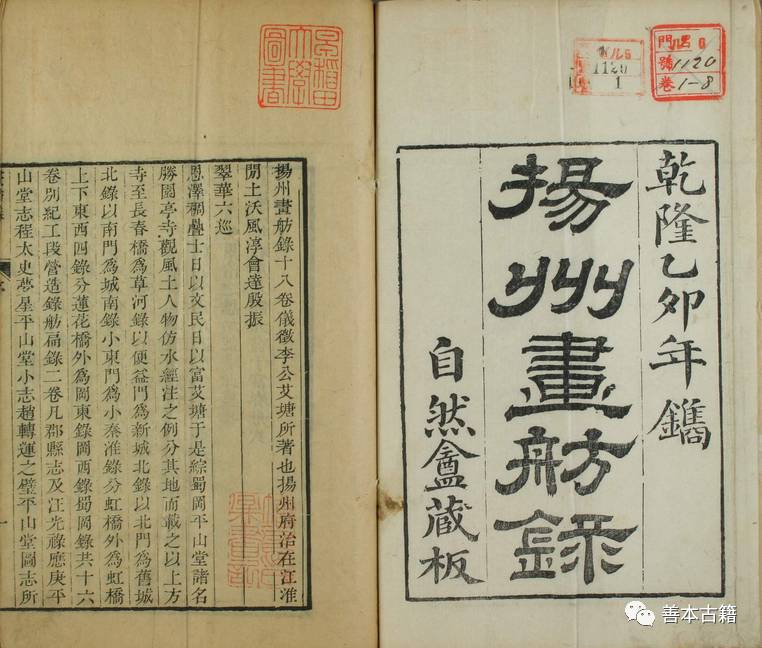 乾隆乙卯年鐫
揚州畫舫錄
自然盦藏板
門
號 1120
卷 1-8
1120
1
早稻田大學圖書
揚州畫舫錄十八卷儀徵李公艾塘所著也揚州府治在江淮
閒土沃風淳會達殷振
翠華六巡
恩澤稠疊士日以文民日以富艾塘于是綜蜀岡平山堂諸名
勝園亭寺觀風土人物仿水經注之例分其地而載之以上方
寺至長春橋為草河錄以便益門為新城北錄以北門為舊城
北錄以南門為城南錄小東門為小秦淮錄分虹橋外為虹橋
上下東西四錄分蓮花橋外為岡東錄岡西錄蜀岡錄共十六
卷別紀工段營造錄舫扁錄二卷凡郡縣志及汪光祿應庚平
山堂志程太史夢星平山堂小志趙轉運之璧平山堂圖志所
善本古籍